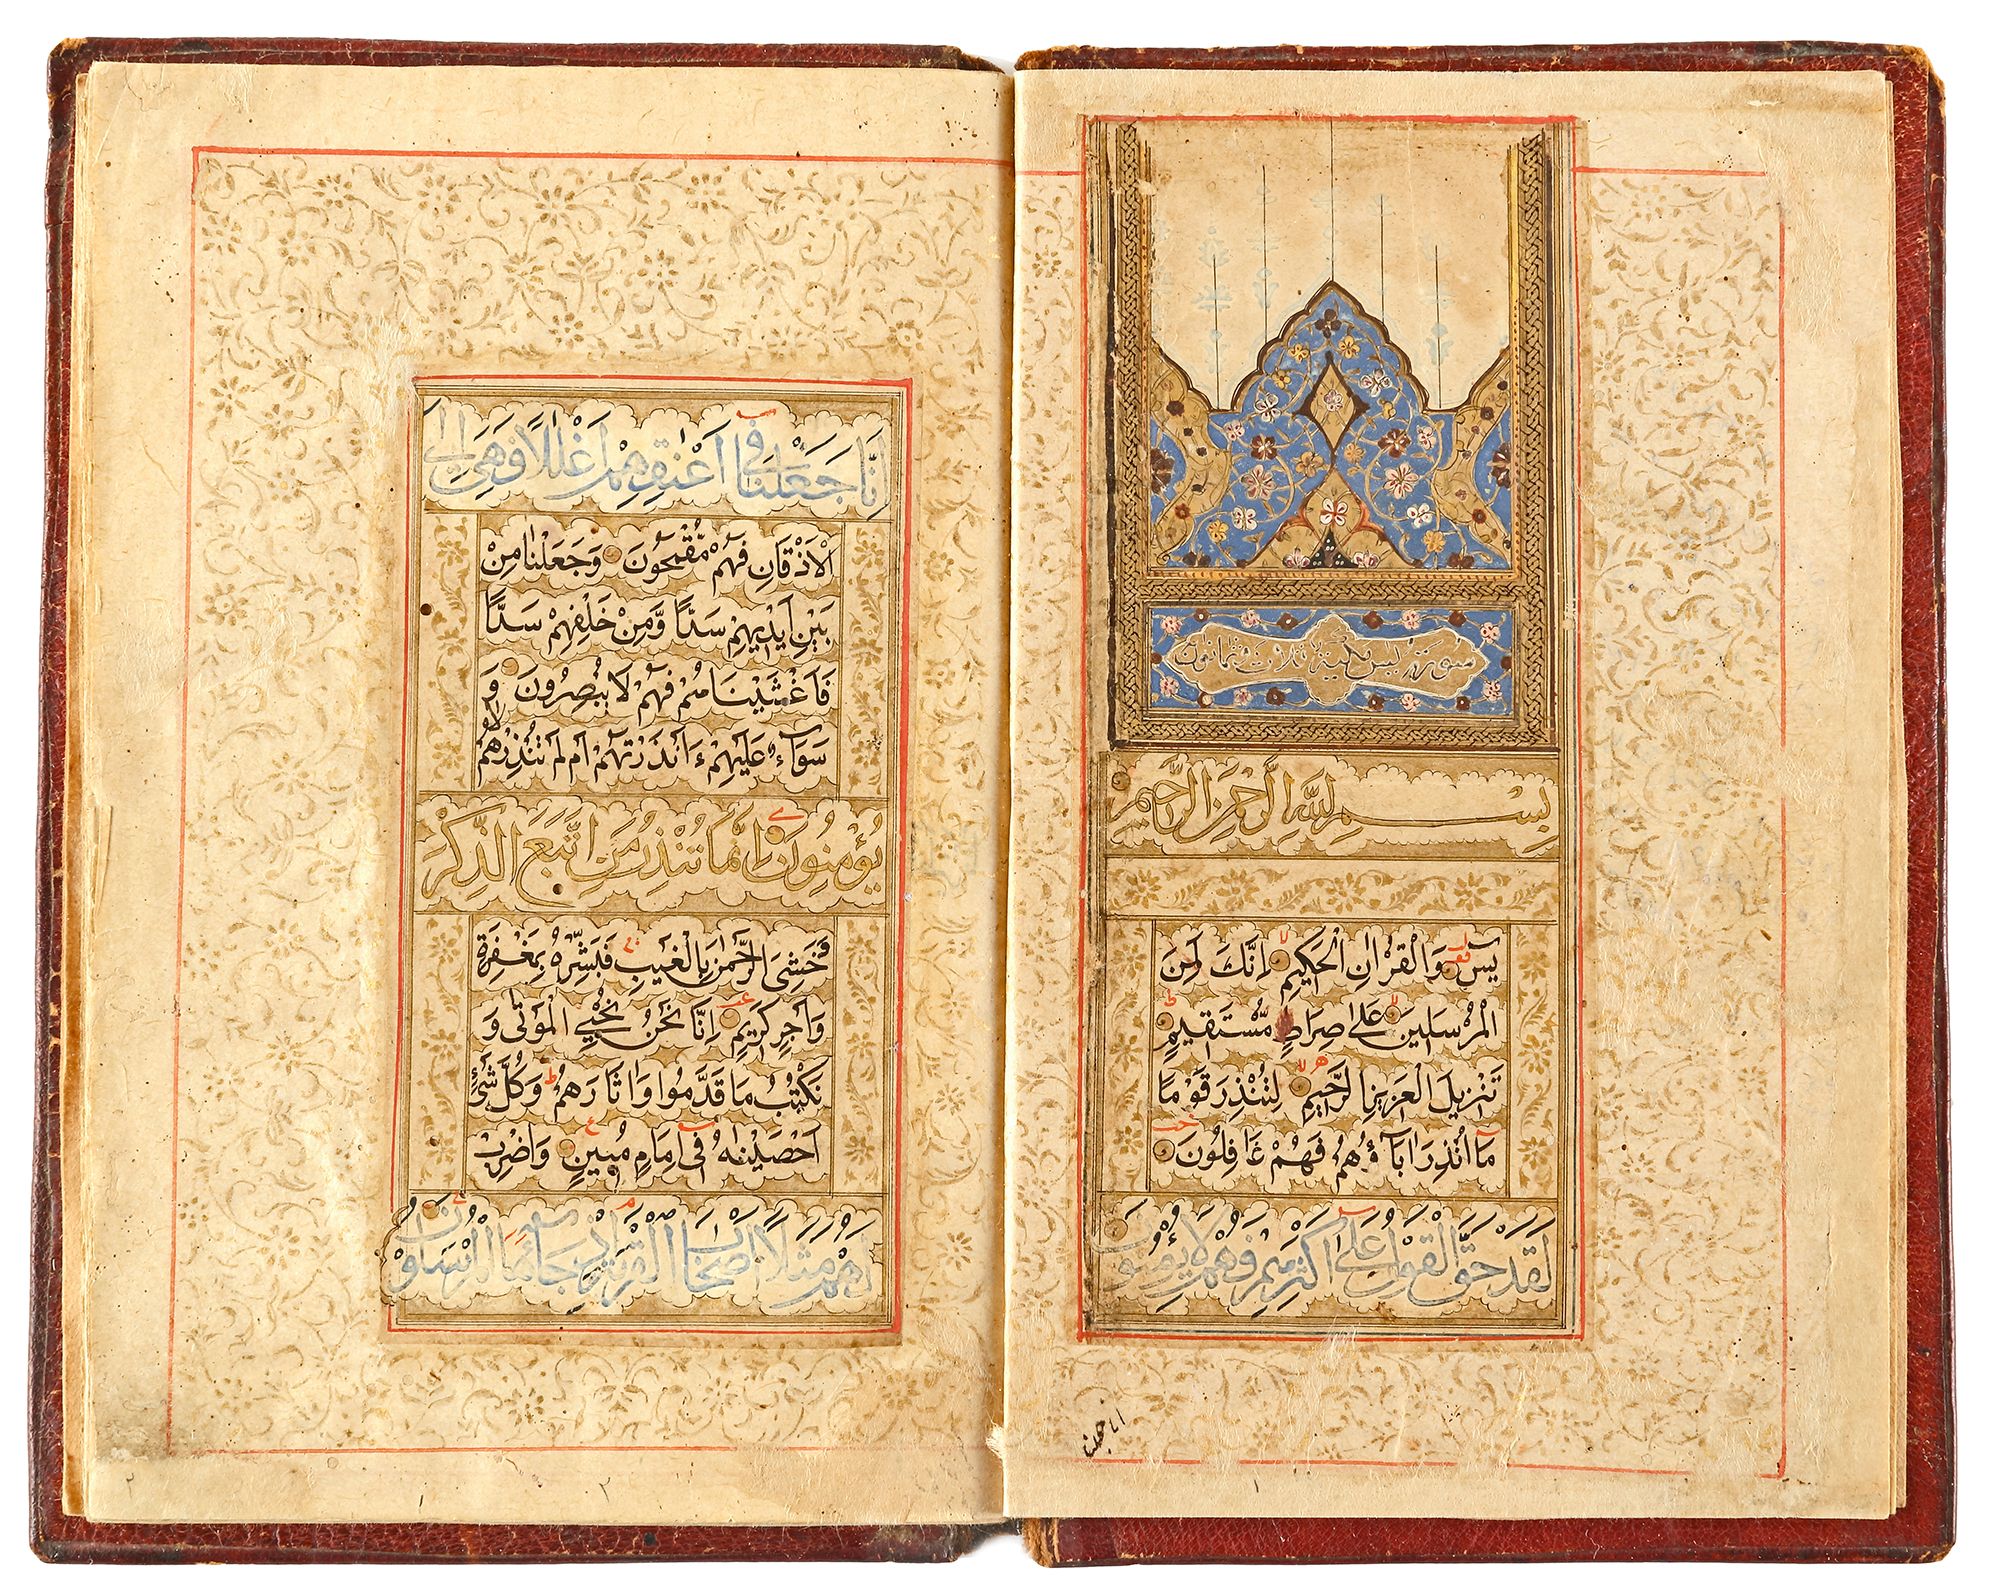 سورة يس مكية ثلاث و ثمانون
بِسْمِ اللهِ الرَّحْمنِ الرَّحِيمِ
يس وَالْقُرْانِ الْحَكِيمِ اِنَّكَ لَمِنَ
الْمُرْسَلِينَ عَلى صِرَاطٍ مُسْتَقِيمٍ
تَنْزِيلَ الْعَزِيزِ الرَّحِيمِ لِتُنْذِرَ قَوْمًا
مَا اُنْذِرَ ابَاؤُهُمْ فَهُمْ غَافِلُونَ
لَقَدْ حَقَّ الْقَوْلُ عَلى اَكْثَرِهِمْ فَهُمْ لَا يُؤْمِنُونَ
اِنَّا جَعَلْنَا فى اَعْنقِهِمْ اَغْللًا فَهِىَ اِلَى
الْاَذْقَانِ فَهُمْ مُقْمَحُونَ وَجَعَلْنَا مِنْ
بَيْنِ اَيْدِيهِمْ سَدًّا وَمِنْ خَلْفِهِمْ سَدًّا
فَاَغْشَيْنَاهُمْ فَهُمْ لَا يُبْصِرُونَ وَ
سَوَاءٌ عَلَيْهِمْ ءَاَنْذَرْتَهُمْ اَمْ لَمْ تُنْذِرْهُمْ لَا
يُؤْمِنُونَ اِنَّمَا تُنْذِرُ مَنِ اتَّبَعَ الذِّكْرَ
وَخَشِىَ الرَّحْمنَ بِالْغَيْبِ فَبَشِّرْهُ بِمَغْفِرَةٍ
وَاَجْرٍ كَرِيمٍ اِنَّا نَحْنُ نُحْيِي الْمَوْتى وَ
نَكْتُبُ مَا قَدَّمُوا وَاثَارَهُمْ وَكُلَّ شَىْءٍ
اَحْصَيْنهُ فى اِمَامٍ مُبِينٍ وَاضْرِبْ
لَهُمْ مَثَلًا اَصْحَابَ الْقَرْيَةِ اِذْ جَاءَهَا الْمُرْسَلُونَ